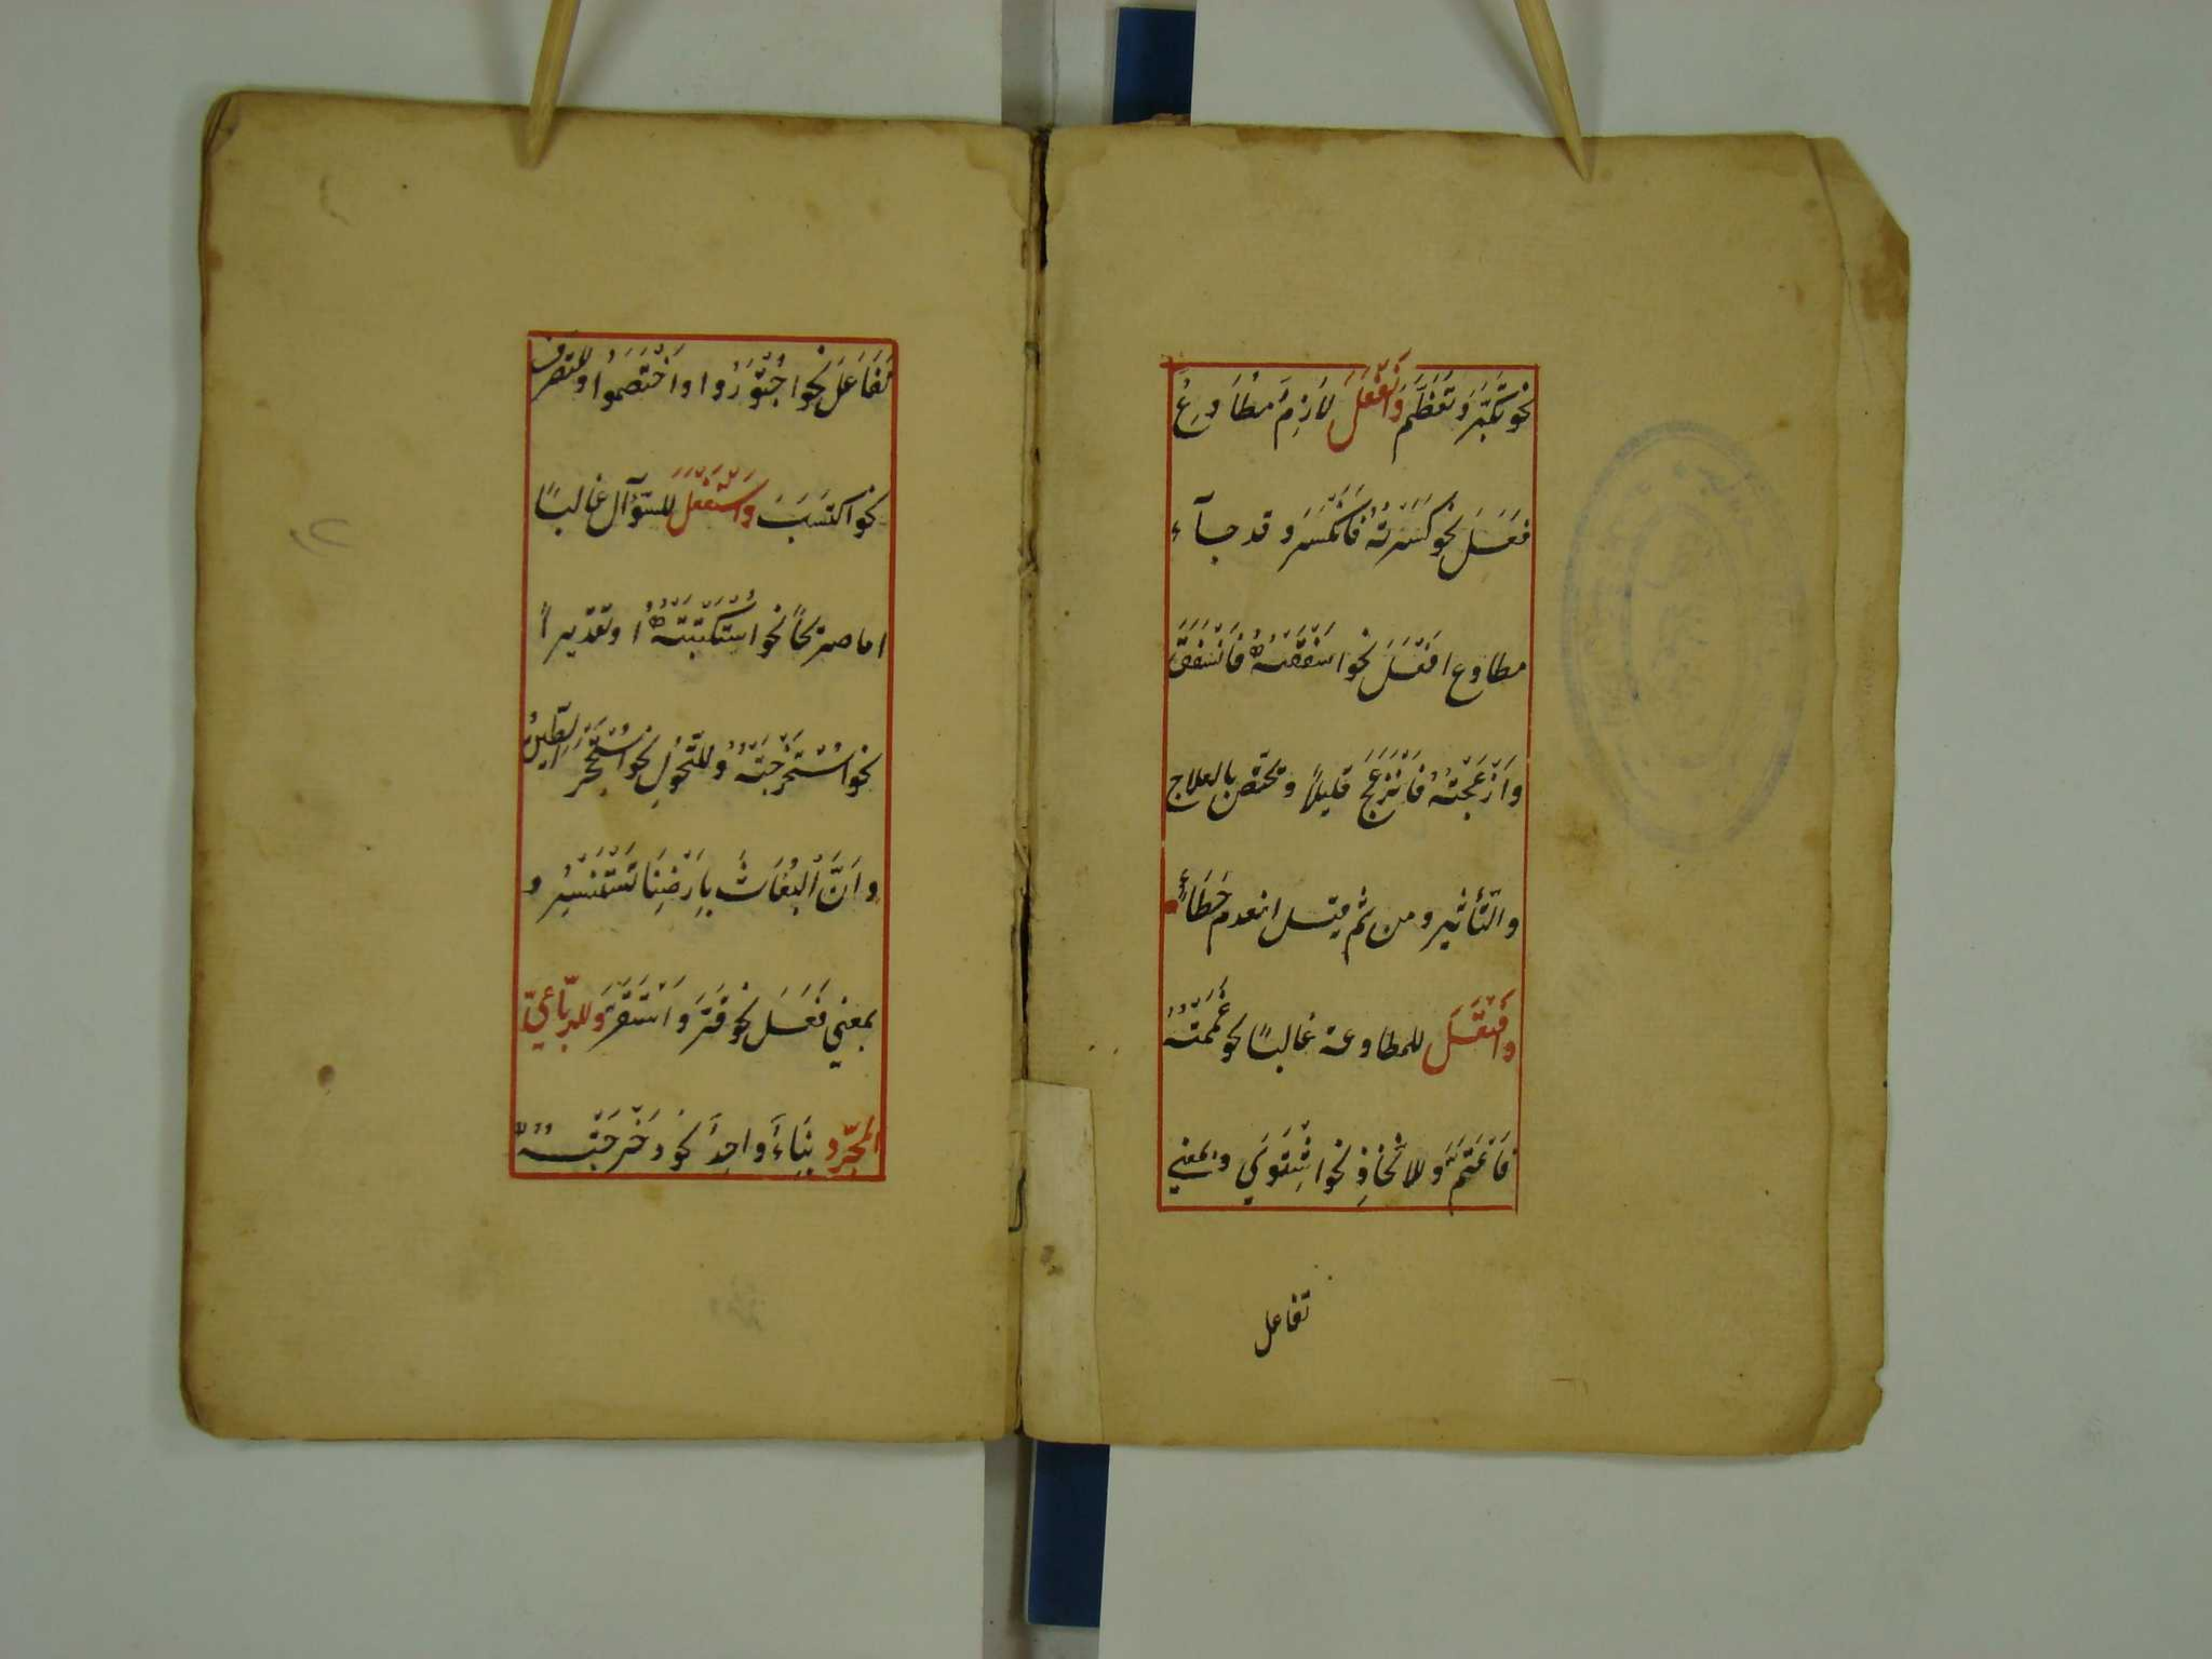 نحو تَكَبَّرَ وَتَعَظَّمَ وَانْفَعَلَ لَازِمٌ مُطَاوِعُ
فَعَلَ نحو كَسَرْتُهُ فَانْكَسَرَ وقد جآء
مطاوع افعَلَ نحو اسفقته فَانْسَفَقَ
وَاَزْعَجْتُهُ فَانْزَعَجَ قليلاً ويختصّ بالعلاج
والتّأثير ومن ثم قيل انعدم خَطَاءٌ
وافْتَعَلَ للمطاوعة غالبًا نحو غَمَمْتُهُ
فَاغْتَمَّ وللاتّخاذِ نحو اشْتَوَي وبمعني
تفاعل
تَفَاعَلَ نحو اجْتَوَرُوا واخْتَصَمُوا وللتصرف
نحو اكتَسَبَ وَاسْتَفْعَلَ للسّؤآل غالبًا
اما صريحًا نحو اسْتَكْتَبْتُهُ او تقديراً
نحو اسْتَخْرَجْتُهُ وللتّحوّلِ نحو اسْتَحْجَرَ الطّينُ
وانَّ الْبُغَاثَ بِاَرْضِنَا تَسْتَنْسِرُ و
بمعني فَعَلَ نحو قَرَّ وَاسْتَقَرَّ وللرّباعيّ
المجرّد بِنَاءٌ واحِدٌ نحو دَحْرَجْتُهُ